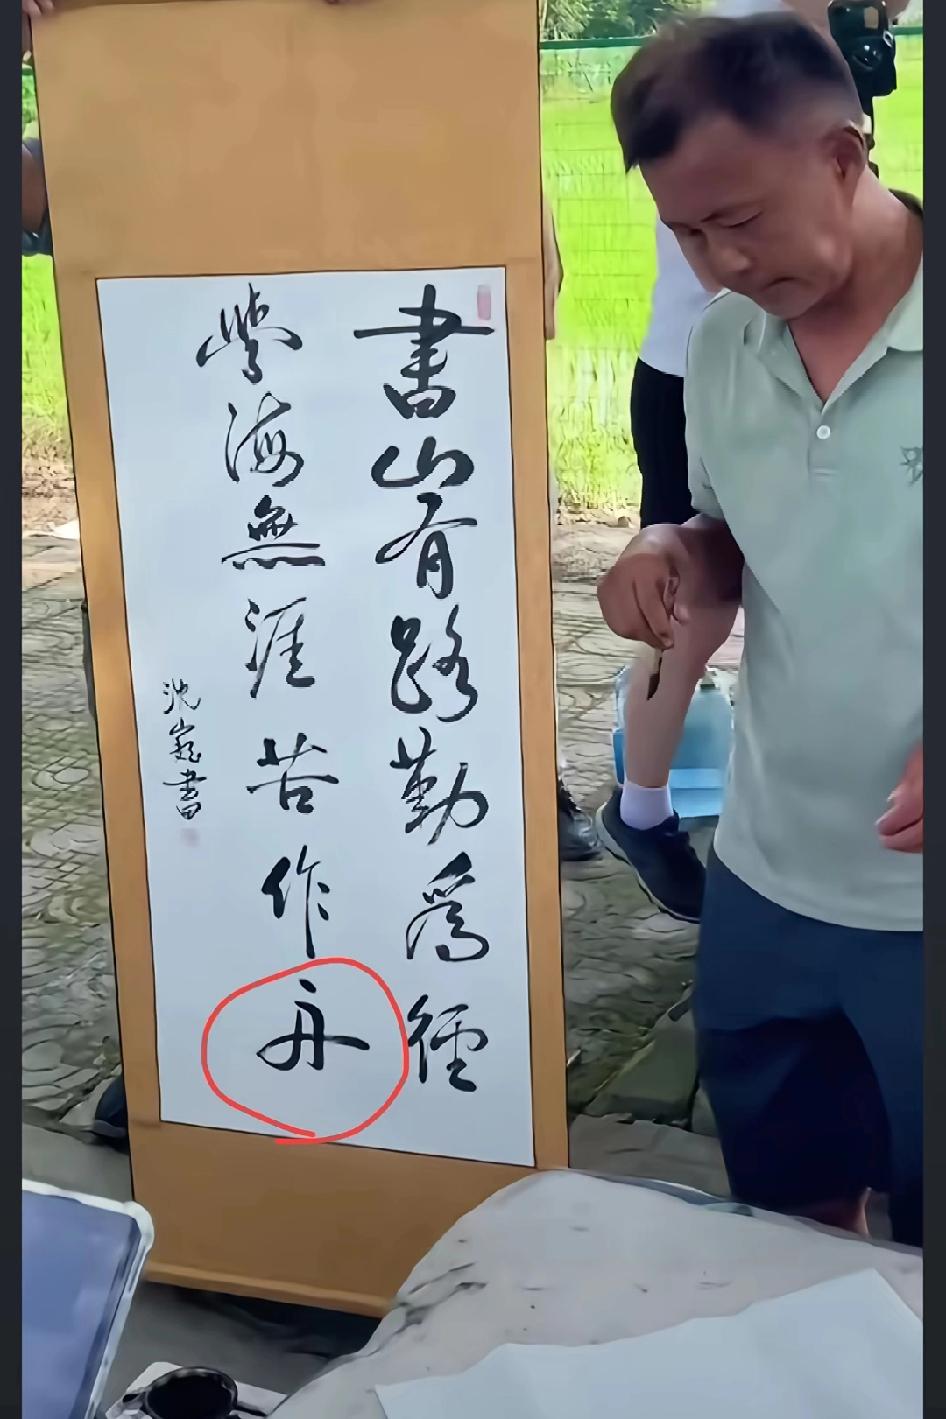 書山有路勤爲徑
學海無涯苦作舟
沈巍書